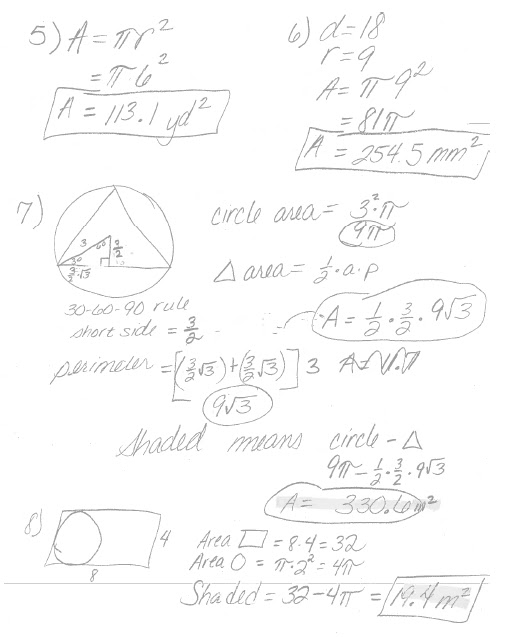 5) A = πr²
= π·6²
A = 113.1 yd²
6) d = 18
r = 9
A = π 9²
= 81π
A = 254.5 mm²
7)
3 60° 3/2
30
3/2·√3
circle area = 3²·π
9π
△ area = 1/2·a·p
30-60-90 rule
short side = 3/2
A = 1/2 · 3/2 · 9√3
perimeter = [(3/2√3) + (3/2√3)] 3
9√3
shaded means circle - △
9π - 1/2 · 3/2 · 9√3
A = 330.6 m²
8)
4
8
Area ▭ = 8·4 = 32
Area O = π·2² = 4π
Shaded = 32 - 4π = 19.4 m²